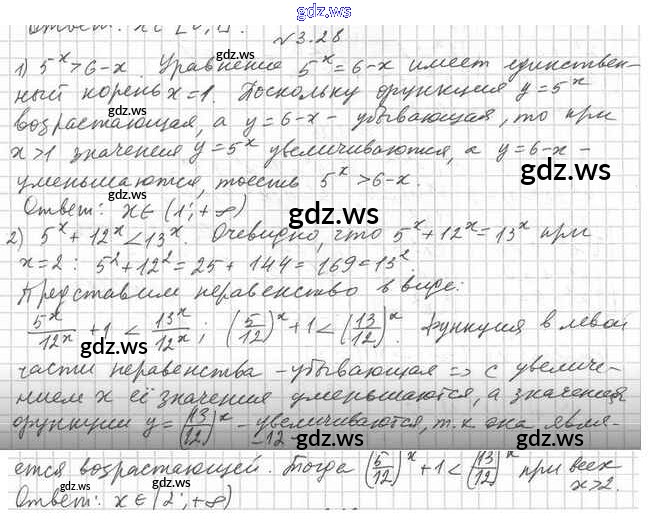 Ответ: x ∈ [0; 1].
gdz.ws
№3.28
1) 5^x > 6-x. Уравнение 5^x = 6-x имеет единствен-
ный корень x = 1. Поскольку функция y = 5^x
возрастающая, а y = 6-x - убывающая, то при
x > 1 значения y = 5^x увеличиваются, а y = 6-x -
уменьшаются, тоесть 5^x > 6-x.
Ответ: x ∈ (1; +∞)
2) 5^x + 12^x < 13^x. Очевидно, что 5^x + 12^x = 13^x при
x = 2: 5^2 + 12^2 = 25 + 144 = 169 = 13^2
Представим неравенство в виде:
5^x/12^x + 1 < 13^x/12^x; (5/12)^x + 1 < (13/12)^x. Функция в левой
части неравенства - убывающая => с увеличе-
нием x её значения уменьшаются, а значения
функции y = (13/12)^x - увеличиваются, т.к она явля-
-12-
ется возрастающей. Тогда (5/12)^x + 1 < (13/12)^x при всех
x > 2.
Ответ: x ∈ (2; +∞)